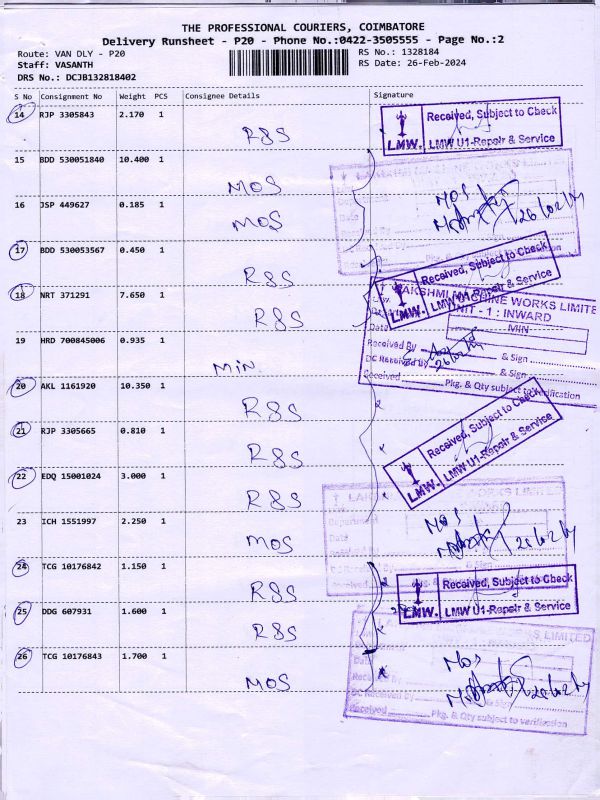 THE PROFESSIONAL COURIERS, COIMBATORE
Delivery Runsheet - P20 - Phone No.:0422-3505555 - Page No.:2
Route: VAN DLY - P20 RS No.: 1328184
Staff: VASANTH RS Date: 26-Feb-2024
DRS No.: DCJB132818402
S No Consignment No Weight PCS Consignee Details Signature
14 RJP 3305843 2.170 1
R&S
Received, Subject to Check
LMW. LMW U1-Repair & Service
15 BDD 530051840 10.400 1
MOS
16 JSP 449627 0.185 1
MOS
MOS
26/02/24
17 BDD 530053567 0.450 1
R&S
Received, Subject to Check
LMW. LMW U1-Repair & Service
18 NRT 371291 7.650 1
R&S
LAKSHMI MACHINE WORKS LIMITED
UNIT - 1 : INWARD
Date MIN
19 HRD 700845006 0.935 1
MIN
Received By & Sign
26/02/24
DC Received by & Sign
Received Pkg. & Qty subject to verification
20 AKL 1161920 10.350 1
R&S
Received, Subject to Check
LMW. LMW U1-Repair & Service
21 RJP 3305665 0.810 1
R&S
22 EDQ 15001024 3.000 1
R&S
23 ICH 1551997 2.250 1
MOS
Department
Date
MOS
26/02/24
24 TCG 10176842 1.150 1
R&S
Received, Subject to Check
LMW. LMW U1-Repair & Service
25 DDG 607931 1.600 1
R&S
26 TCG 10176843 1.700 1
MOS
MOS
26/02/24
DC Received by & Sign
Received Pkg. & Qty subject to verification